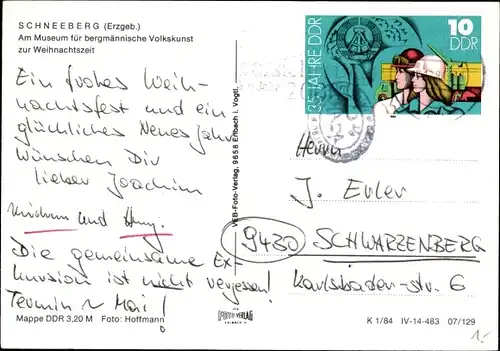 SCHNEEBERG (Erzgeb.)
Am Museum für bergmännische Volkskunst
zur Weihnachtszeit
Ein frohes Weih-
nachtsfest und ein
glückliches Neues Jahr
wünschen Dir
lieber Joachim
und
Die gemeinsame Ex-
kursion ist nicht vergessen!
Termin ~ Mai!
Mappe DDR 3,20 M Foto: Hoffmann
VEB-Foto-Verlag, 9658 Erlbach i. Vogtl.
FOTO-VERLAG
35 JAHRE DDR
10
DDR
Herrn
J. Euler
9430 SCHWARZENBERG
Karlsbader-str. 6
K 1/84 IV-14-483 07/129
1.-